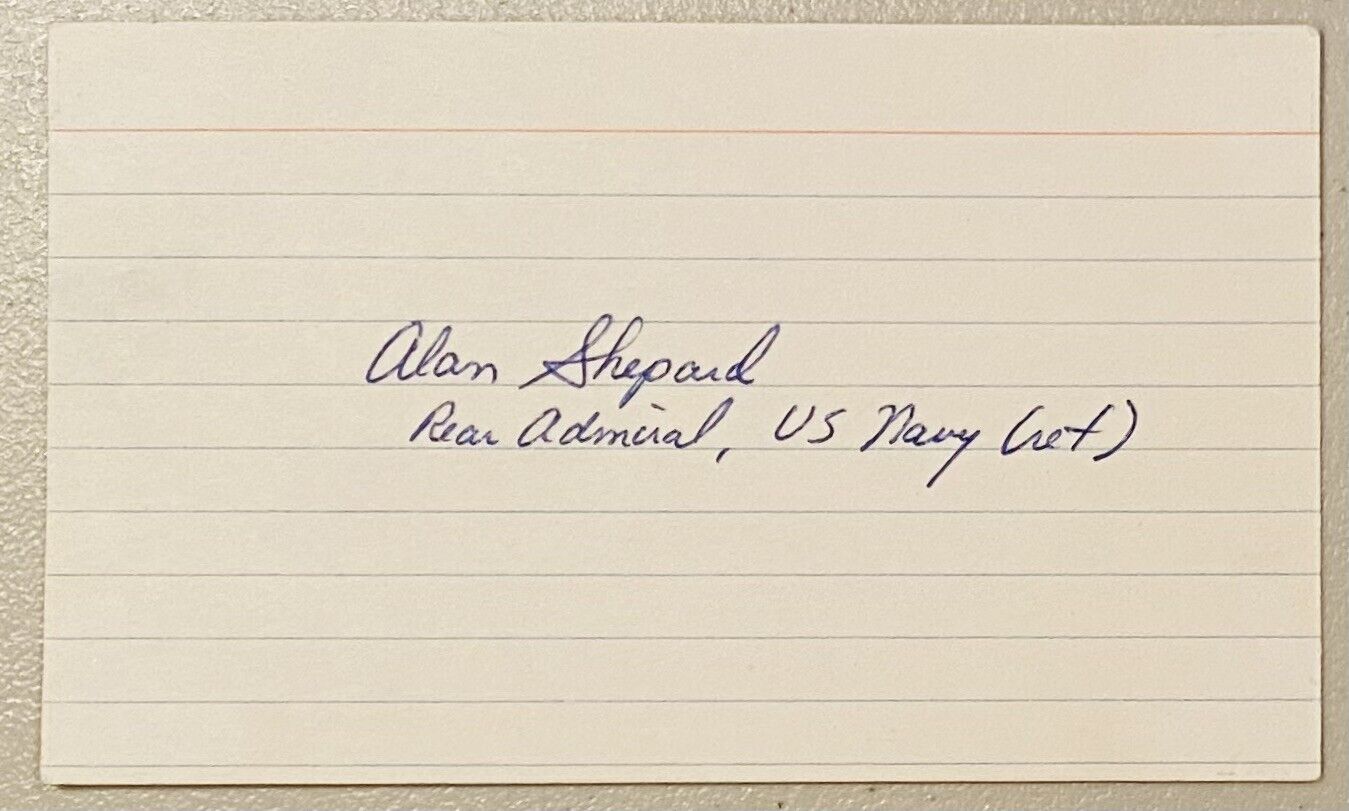 Alan Shepard
Rear Admiral, US Navy (ret)